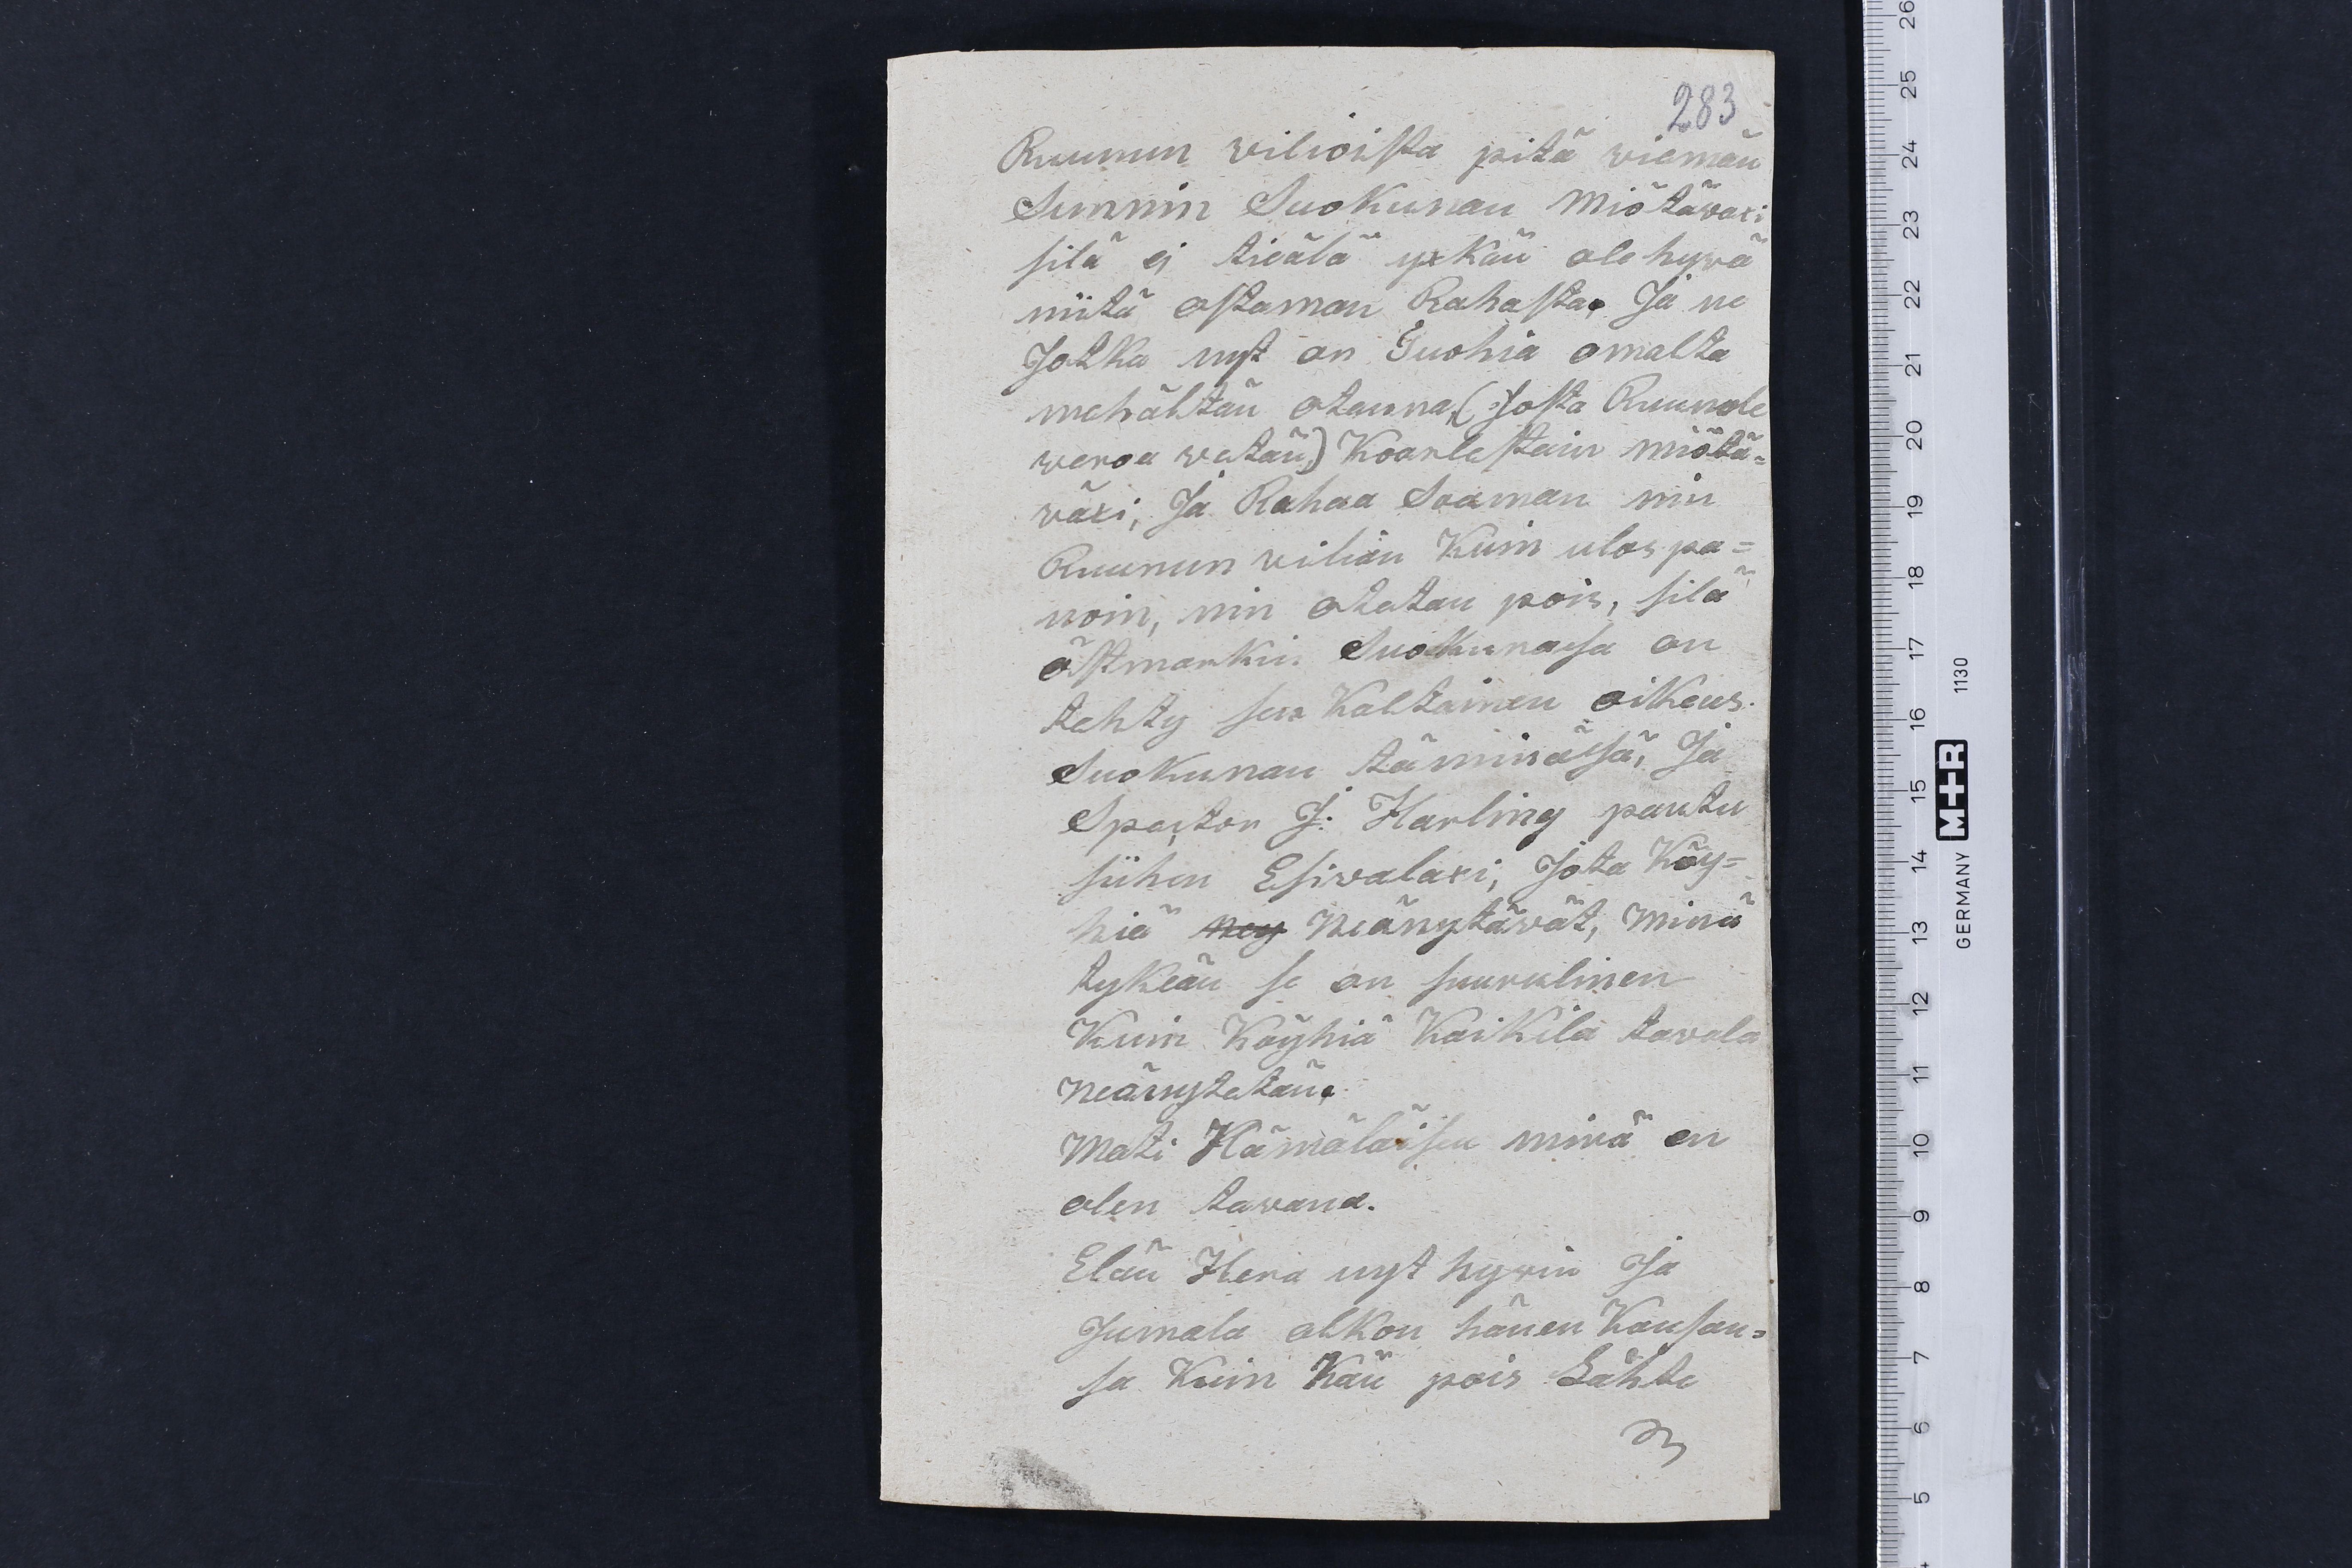 283
Ruunun vilioista pitä viemän
Sunnin Suokunan Miötäväxi
silä ej tieälä yxkän ole hyvä
niitä ostaman Rahasta, Ja ne
Jotka nyt on Tuohia omalta
mehältän otanna, (Josta Ruunole
veroa vetän) Koarlestain Miötä=
växi, Ja Rahaa Soaman nin
Ruunun viliän Kuin ulos pa=
noin, nin otetan pois, silä
östmarkin Suokunasa on
tehty sen Kaltainen oikeus.
Suokunan täminäsä, Ja
Spector J: Harling pantu
siihen Esivalaxi, Jota Köy=
hiä Neänytävät, Minä
tykeän se on suurulinen
Kuin Köyhiä Kaikila tavala
Neänytetän.
Mati Hämäläisen minä en
olen tavana.
Elän Hera nyt hyvin Ja
Jumala olkon hänen Kansan=
sa Kuin Kän pois Lähte
GERMANY M+R 1130
26
25
24
23
22
21
20
19
18
17
16
15
14
13
12
11
10
9
8
7
6
5